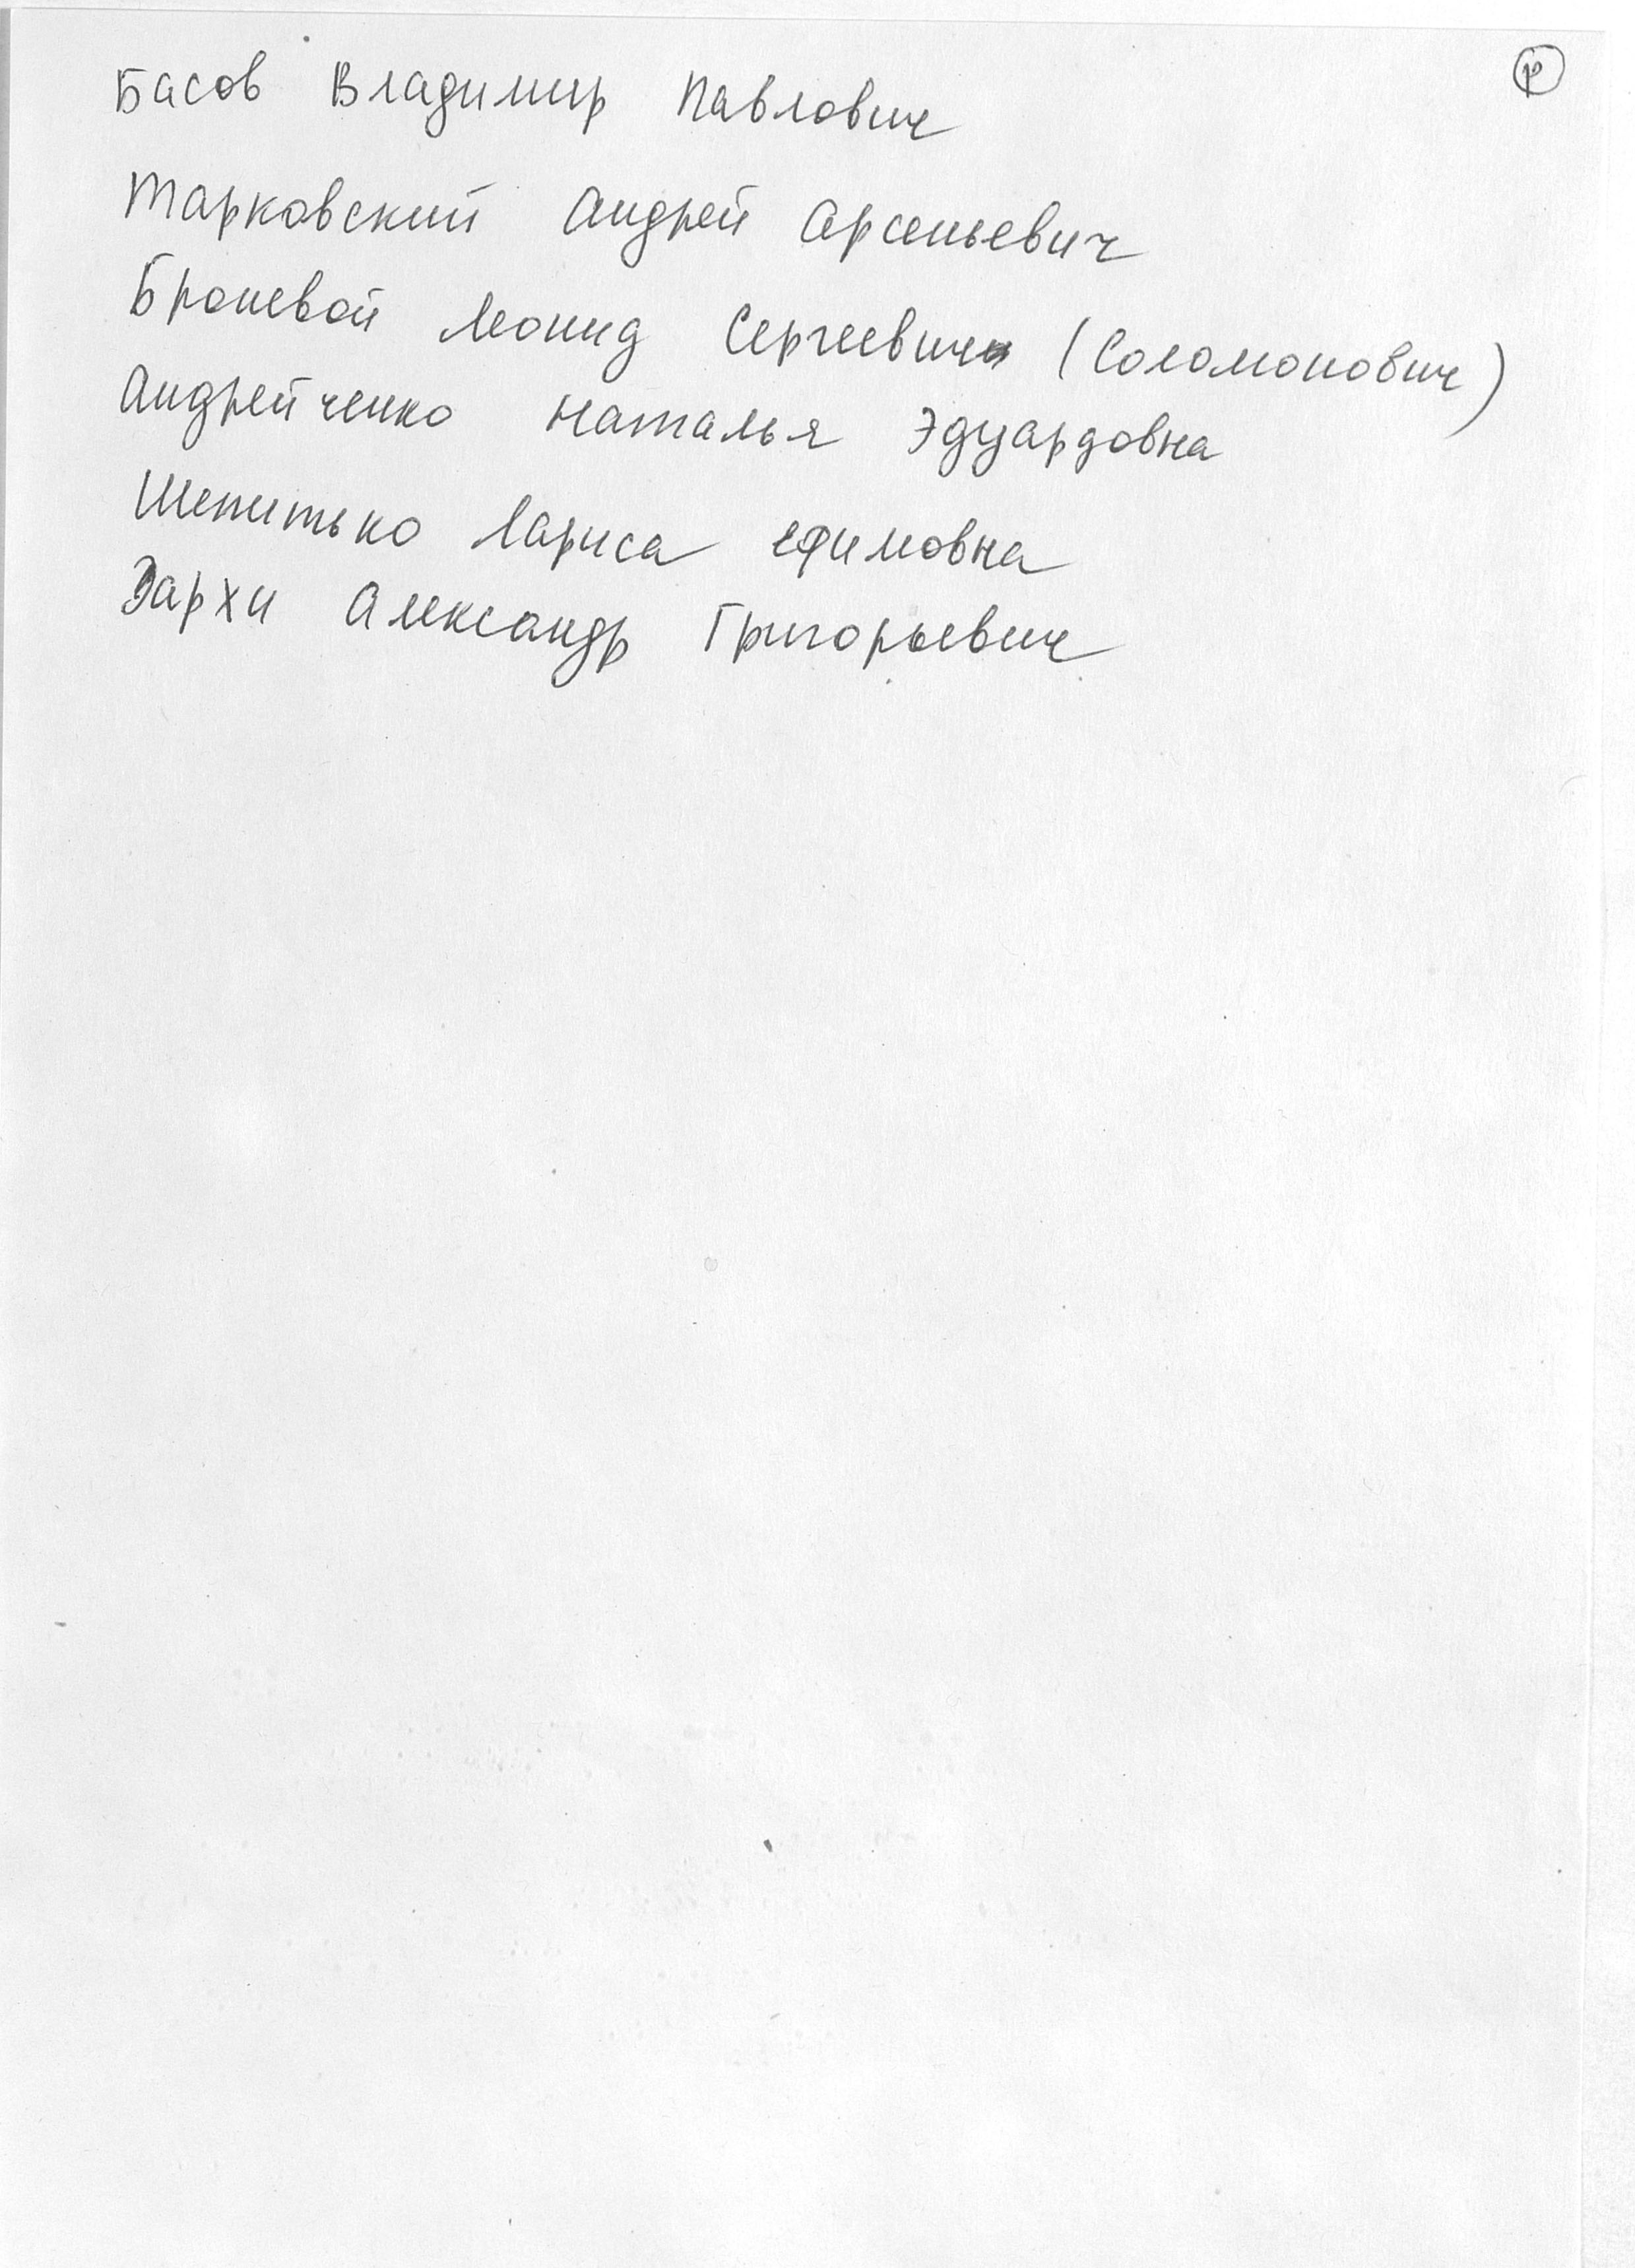 Басов Владимир Павлович
Тарковский Андрей Арсеньевич
Броневой Леонид Сергеевич (Соломонович)
Андрейченко Наталья Эдуардовна
Шепитько Лариса Ефимовна
Зархи Александр Григорьевич